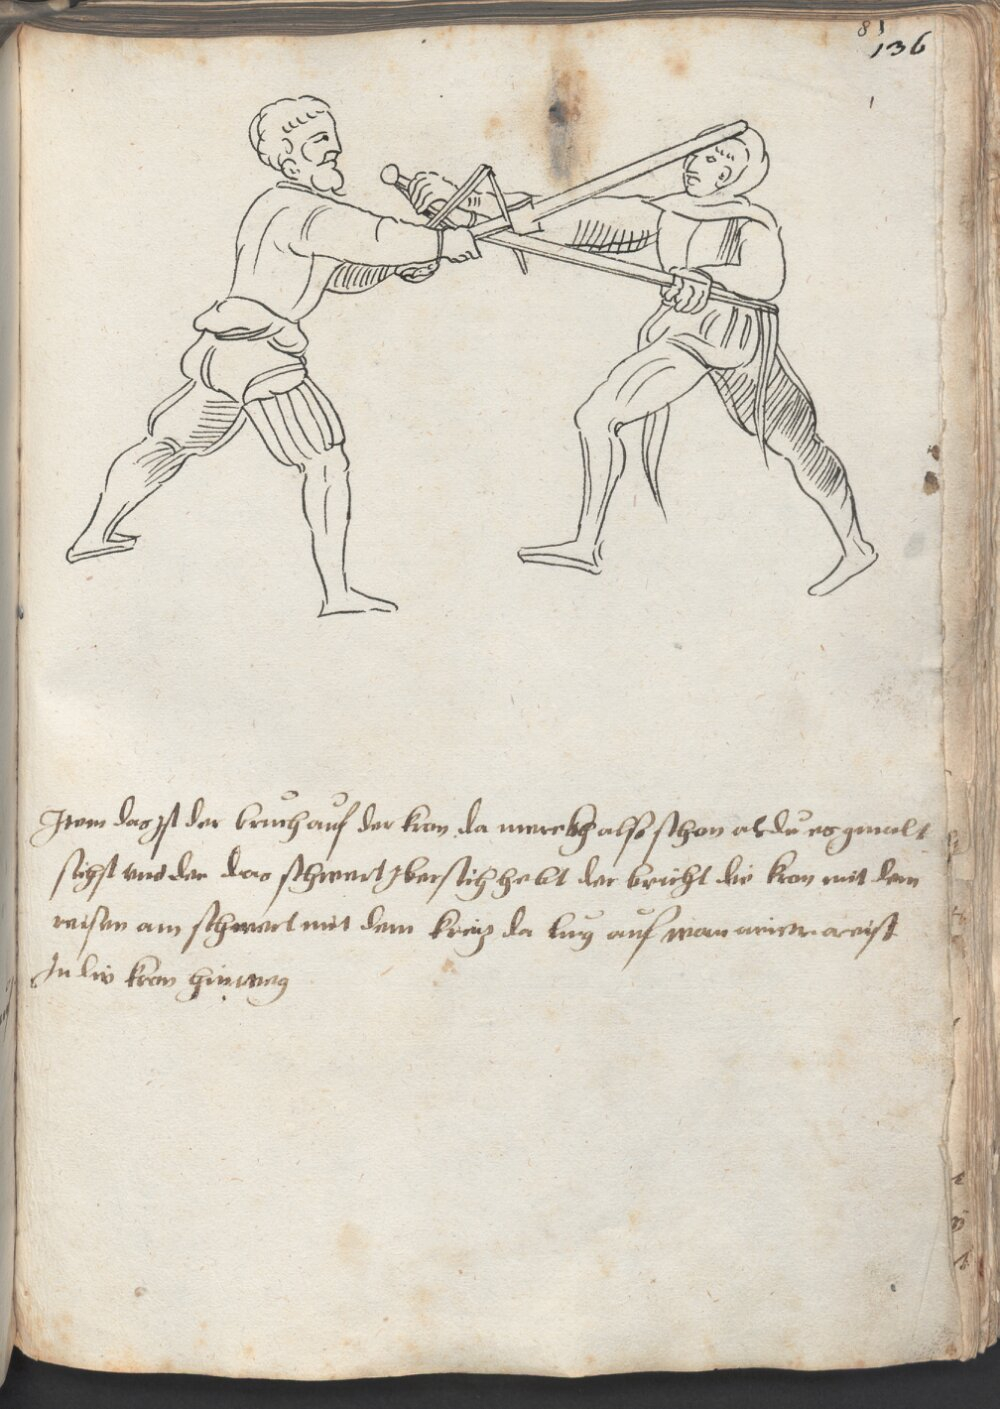 81
136
Item das ist der bruch auf der kron da merckh also schon als du es gmalt
sichst und der das schwert ybersich hebt der bricht die kron mit dem
reisen am schwert mit dem kreiz da lug auf wan
In die kron hinweg